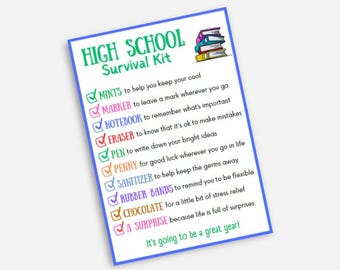 HIGH SCHOOL
Survival Kit
MINTS to help you keep your cool
MARKER to leave a mark wherever you go
NOTEBOOK to remember what's important
ERASER to know that it's ok to make mistakes
PEN to write down your bright ideas
PENNY for good luck wherever you go in life
SANITIZER to help keep the germs away
RUBBER BANDS to remind you to be flexible
CHOCOLATE for a little bit of stress relief
A SURPRISE because life is full of surprises
It's going to be a great year!